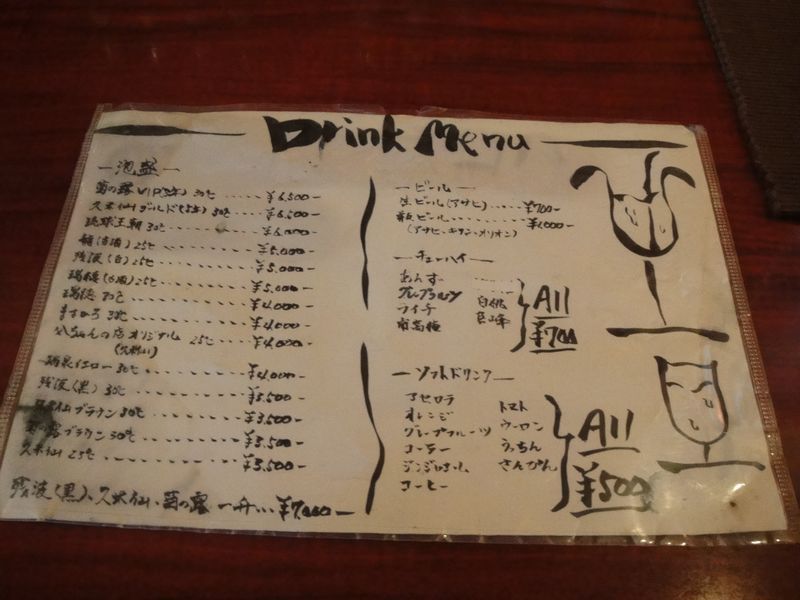 Drink Menu
― 泡盛 ―
菊の露VIP(5年) 30℃ ‥‥‥ ¥6,500-
久米仙ゴールド(5年) 30℃ ‥‥ ¥6,500-
琉球王朝 30℃ ‥‥‥‥ ¥6,000-
(古酒) 25℃ ‥‥‥‥ ¥5,000-
残波(白) 25℃ ‥‥‥‥ ¥5,000-
瑞穂(古酒) 25℃ ‥‥‥‥ ¥5,000-
瑞穂 30℃ ‥‥‥‥ ¥4,000-
まさひろ 30℃ ‥‥‥‥ ¥4,000-
ちゃんの店オリジナル 25℃ ‥‥ ¥4,000-
イエロー 30℃ ‥‥‥‥ ¥4,000-
残波(黒) 30℃ ‥‥‥‥ ¥3,500-
久米仙ブラウン 30℃ ‥‥‥‥ ¥3,500-
菊の露ブラウン 30℃ ‥‥‥‥ ¥3,500-
久米仙 25℃ ‥‥‥‥ ¥3,500-
残波(黒)、久米仙、菊の露 一升‥‥ ¥7,000-
― ビール ―
生ビール(アサヒ) ‥‥‥ ¥700-
瓶ビール ‥‥‥‥ ¥1,000-
(アサヒ・キリン・オリオン)
― チューハイ ―
あんず
グレープフルーツ 白桃
ライチ 巨峰
南高梅
All
¥700
― ソフトドリンク ―
アセロラ トマト
オレンジ ウーロン
グレープフルーツ うっちん
コーラー さんぴん
ジンジャエール
コーヒー
All
¥500